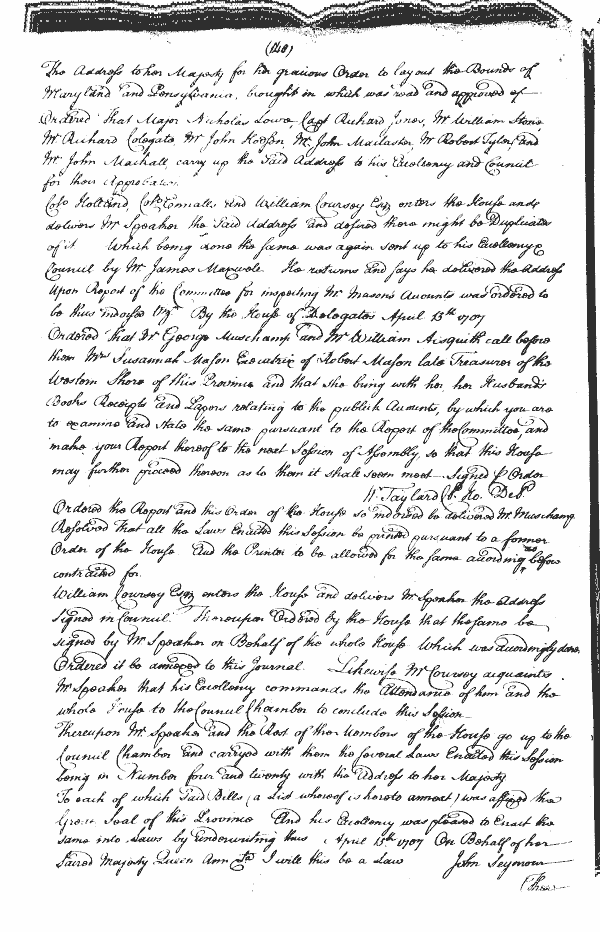 (148)
The Address to her Majesty for her gracious Order to layout the Bounds of
Maryland and Pensylvania, brought in which was read and approved of
Ordered That Major Nicholas Lowe, Capt Richard Jones, Mr William Stone,
Mr Richard Colegate, Mr John Hodson, Mr John Macclaster, Mr Robert Tyler, and
Mr John Mackall, carry up the said Address to his Excellency and Council
for their Approbation
Colo Holland, Colo Ennalls and William Coursey Esqr enters the House and
delivers Mr Speaker the said Address and desired there might be Duplicates
of it Which being done the same was again sent up to his Excellency &
Council by Mr James Maxwell. He returns and says he delivered the Address
Upon Report of the Committee for inspecting Mr Masons Accounts was ordered to
be thus indorsed Vizt. By the House of Delegates April 15th 1707
Ordered that Mr George Muschamp and Mr William Aisquith call before
them Mrs Susannah Mason Executrix of Robert Mason late Treasurer of the
Western Shore of this Province and that she bring with her, her Husbands
Books Receipts and Papers relating to the publick Accounts, by which you are
to examine and State the same pursuant to the Report of the Committee and
make your Report thereof to the next Session of Assembly, so that this House
may further proceed thereon as to them it shall seem meet Signed P Order
W. Taylard Cl. Ho. Del.
Ordered the Report and this Order of the House so indorsed be delivered Mr Muschamp
Resolved That all the Laws Enacted this Session be printed pursuant to a former
Order of the House And the Printer to be allowed for the same according as before
contracted for.
William Coursey Esqr enters the House and delivers Mr Speaker the Address
signed in Council. Thereupon Ordered by the House that the same be
signed by Mr Speaker on Behalf of the whole House Which was accordingly done
Ordered it be annexed to this Journal. Likewise Mr Coursey acquaints
Mr Speaker that his Excellency commands the Attendance of him and the
whole House to the Council Chamber to conclude this Session
Thereupon Mr Speaker and the Rest of the Members of the House go up to the
Council Chamber and carryed with them the several Laws Enacted this Session
being in Number four and twenty with the Address to her Majesty
To each of which said Bills (a List whereof is hereto annext) was affixed the
Great Seal of this Province And his Excellency was pleased to Enact the
same into Laws by underwriting thus April 15th 1707 On Behalf of her
Sacred Majesty Queen Ann &ca I will this be a Law John Seymour
Thee